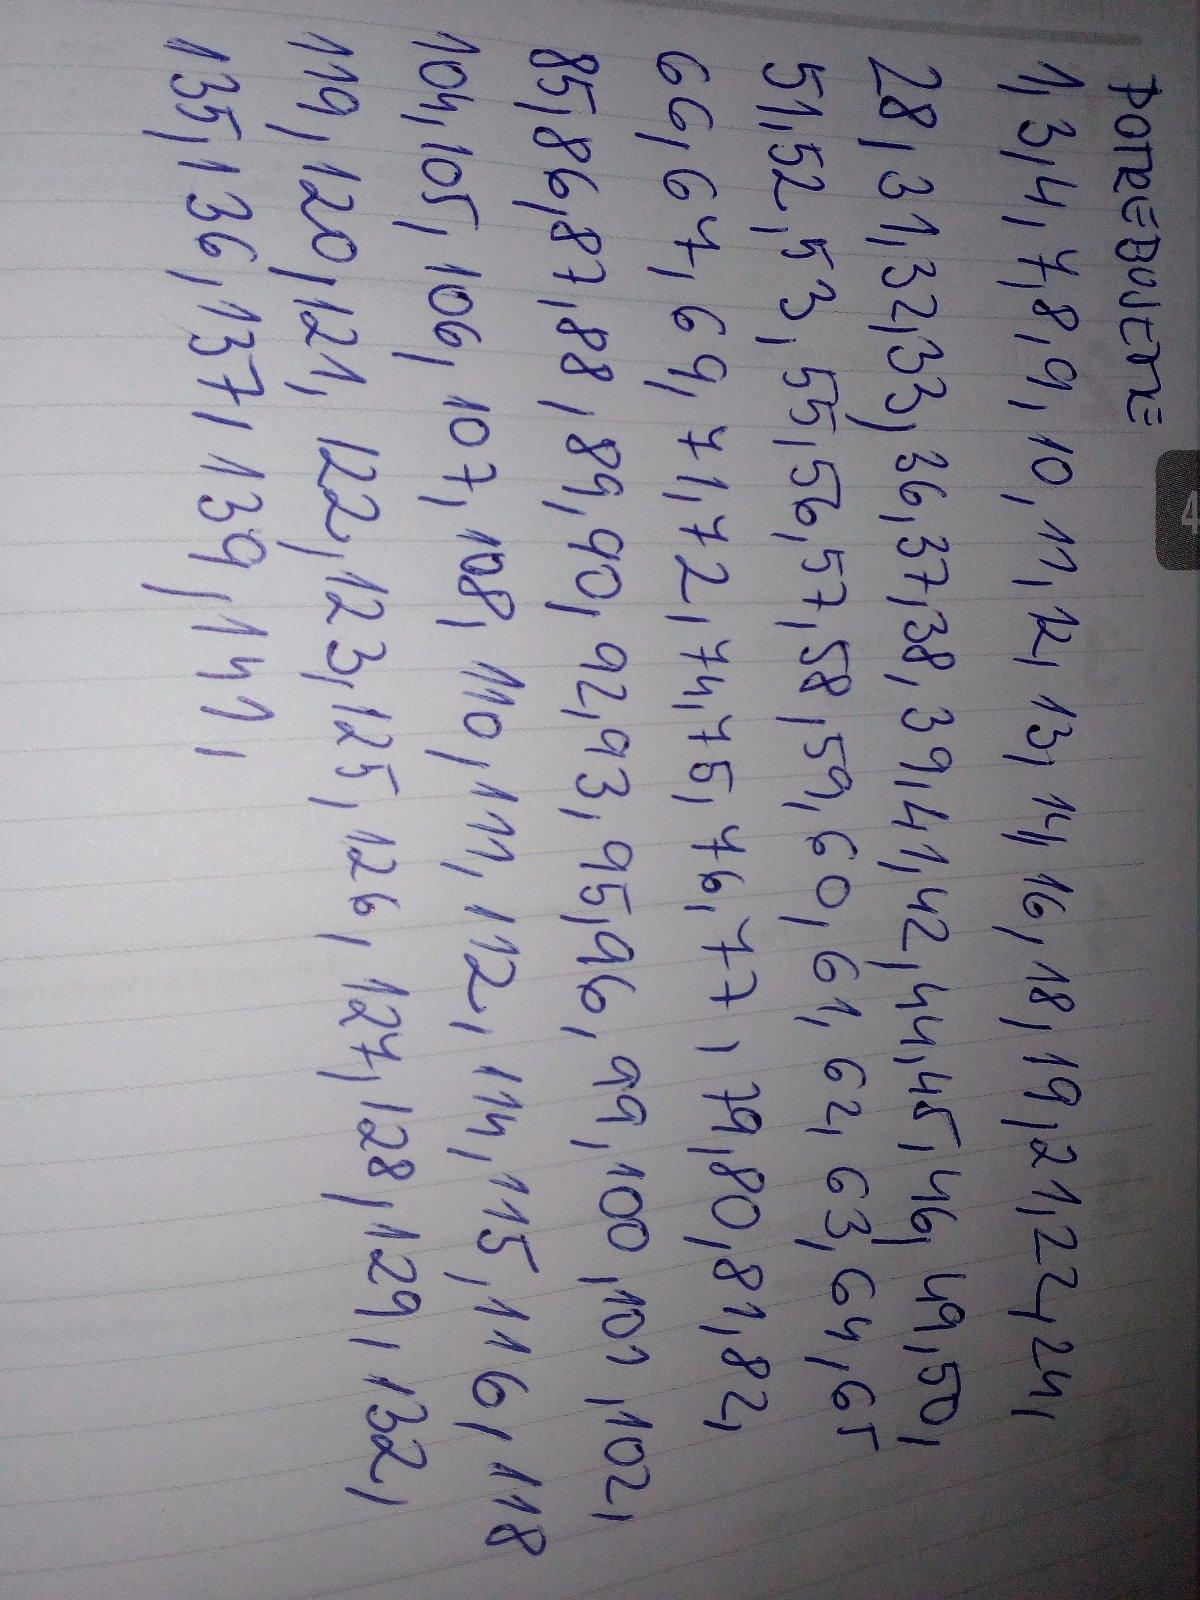 POTŘEBUJEME
1, 3, 4, 7, 8, 9, 10, 11, 12, 13, 14, 16, 18, 19, 21, 22, 24,
28, 31, 32, 33, 36, 37, 38, 39, 41, 42, 44, 45, 46, 49, 50,
51, 52, 53, 55, 56, 57, 58, 59, 60, 61, 62, 63, 64, 65
66, 67, 69, 71, 72, 74, 75, 76, 77, 79, 80, 81, 82,
85, 86, 87, 88, 89, 90, 92, 93, 95, 96, 99, 100, 101, 102,
104, 105, 106, 107, 108, 110, 111, 112, 114, 115, 116, 118
119, 120, 121, 122, 123, 125, 126, 127, 128, 129, 132,
135, 136, 137, 139, 141,